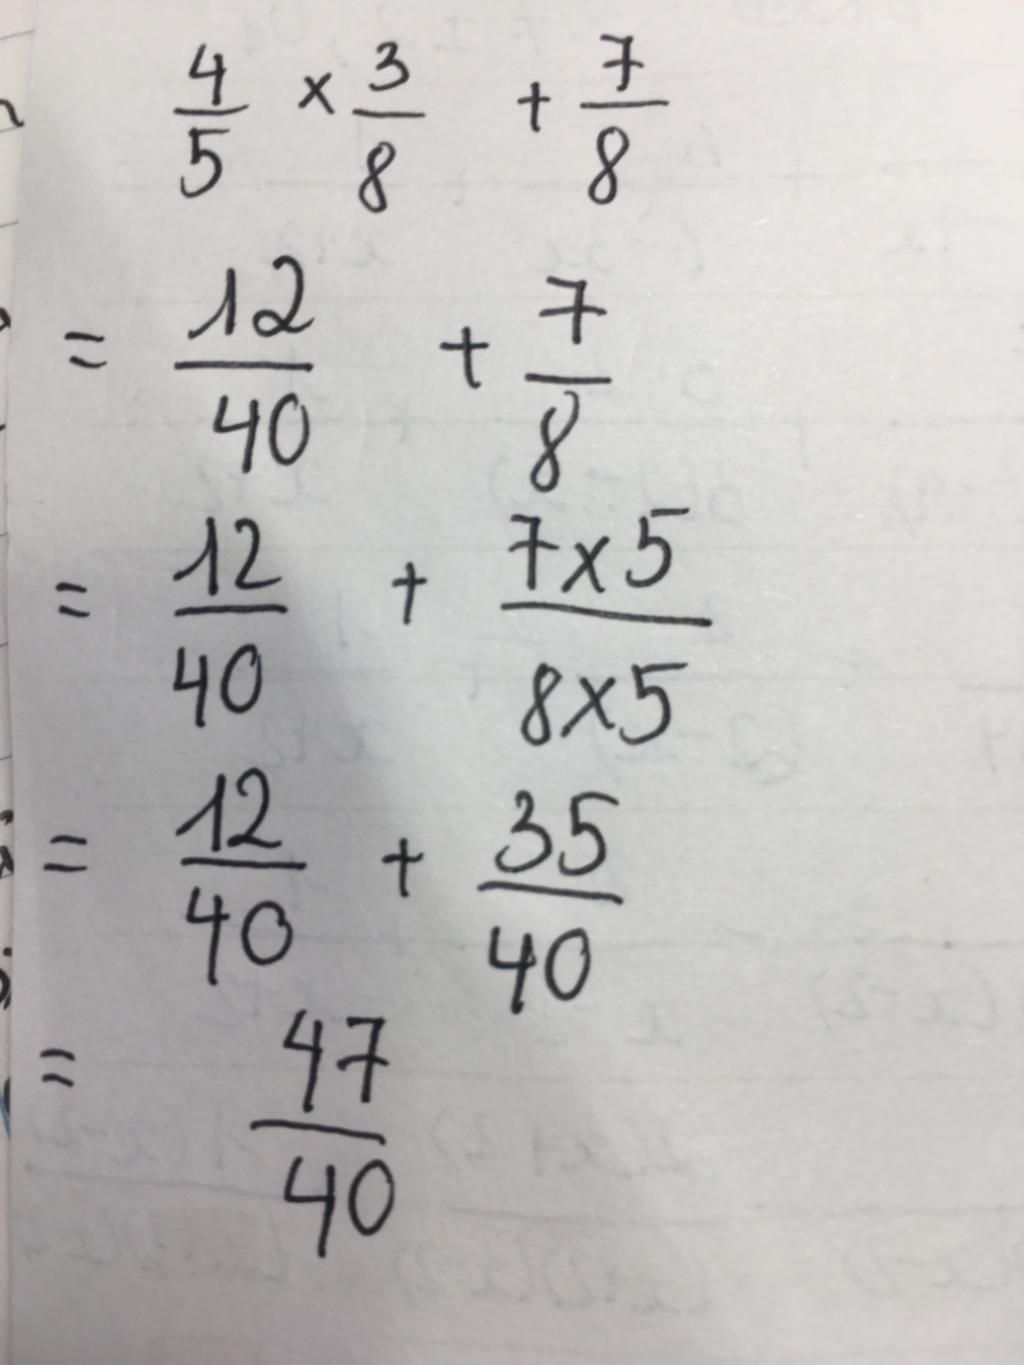 4/5 × 3/8 + 7/8
= 12/40 + 7/8
= 12/40 + 7×5/8×5
= 12/40 + 35/40
= 47/40